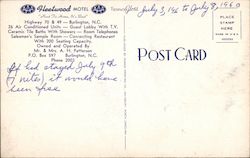 AAA Fleetwood MOTEL AAA
"Next To Home, It's Best"
Highway 70 & 49 — Burlington, N.C.
26 Air Conditioned Units — Guest Lobby With T.V.
Ceramic Tile Baths With Showers — Room Telephones
Salesmen's Sample Room — Connecting Restaurant
With 200 Seating Capacity.
Owned and Operated By
Mr. & Mrs. A. H. Patterson
P.O. Box 597 Burlington, N.C.
Phone
July 3, '60 to July 8, 1960
PLACE
STAMP
HERE
POST CARD
If had stayed July 9th
(7 nites) it would have
been free